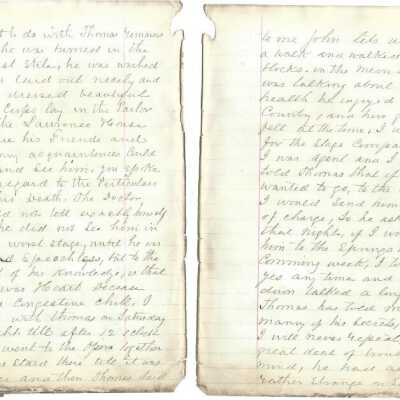 t to do with Thomas Remains
he was turnest in the
st Stile, he was washed
laid out neely and
dressed beautiful
Corps lay in the Parlor
the Lawrence House
his Friends and
ny acquaintences Could
and see him, you spoke
regard to the Particulars
his Death. The Doctor
did not tell exactly how
he did not see him in
worst stage, until he was
Speachless, but to the
of his Knowledge, so that
was Heart Decease
Congestive Chill. I
with Thomas on Saturday
till after 12 o clock
went to the Opera together
Staid there till it was
and then Thomas said
to me John lets
a walk and walked
Blocks. in the mean
was talking about
health he enjoyd
Country, and how
fell all the time, I
for the Stage Compa
I was Agent and I
told Thomas that if
wanted to go, to the
I would send him
of charge, So he as
that night, if I wo
him to the Springs
Comming week, I to
yes any time and
down talked a lon
Thomas has told m
many of his Secrets,
I will never repeat
great deal of trou
mind, he had a
rather strange on S